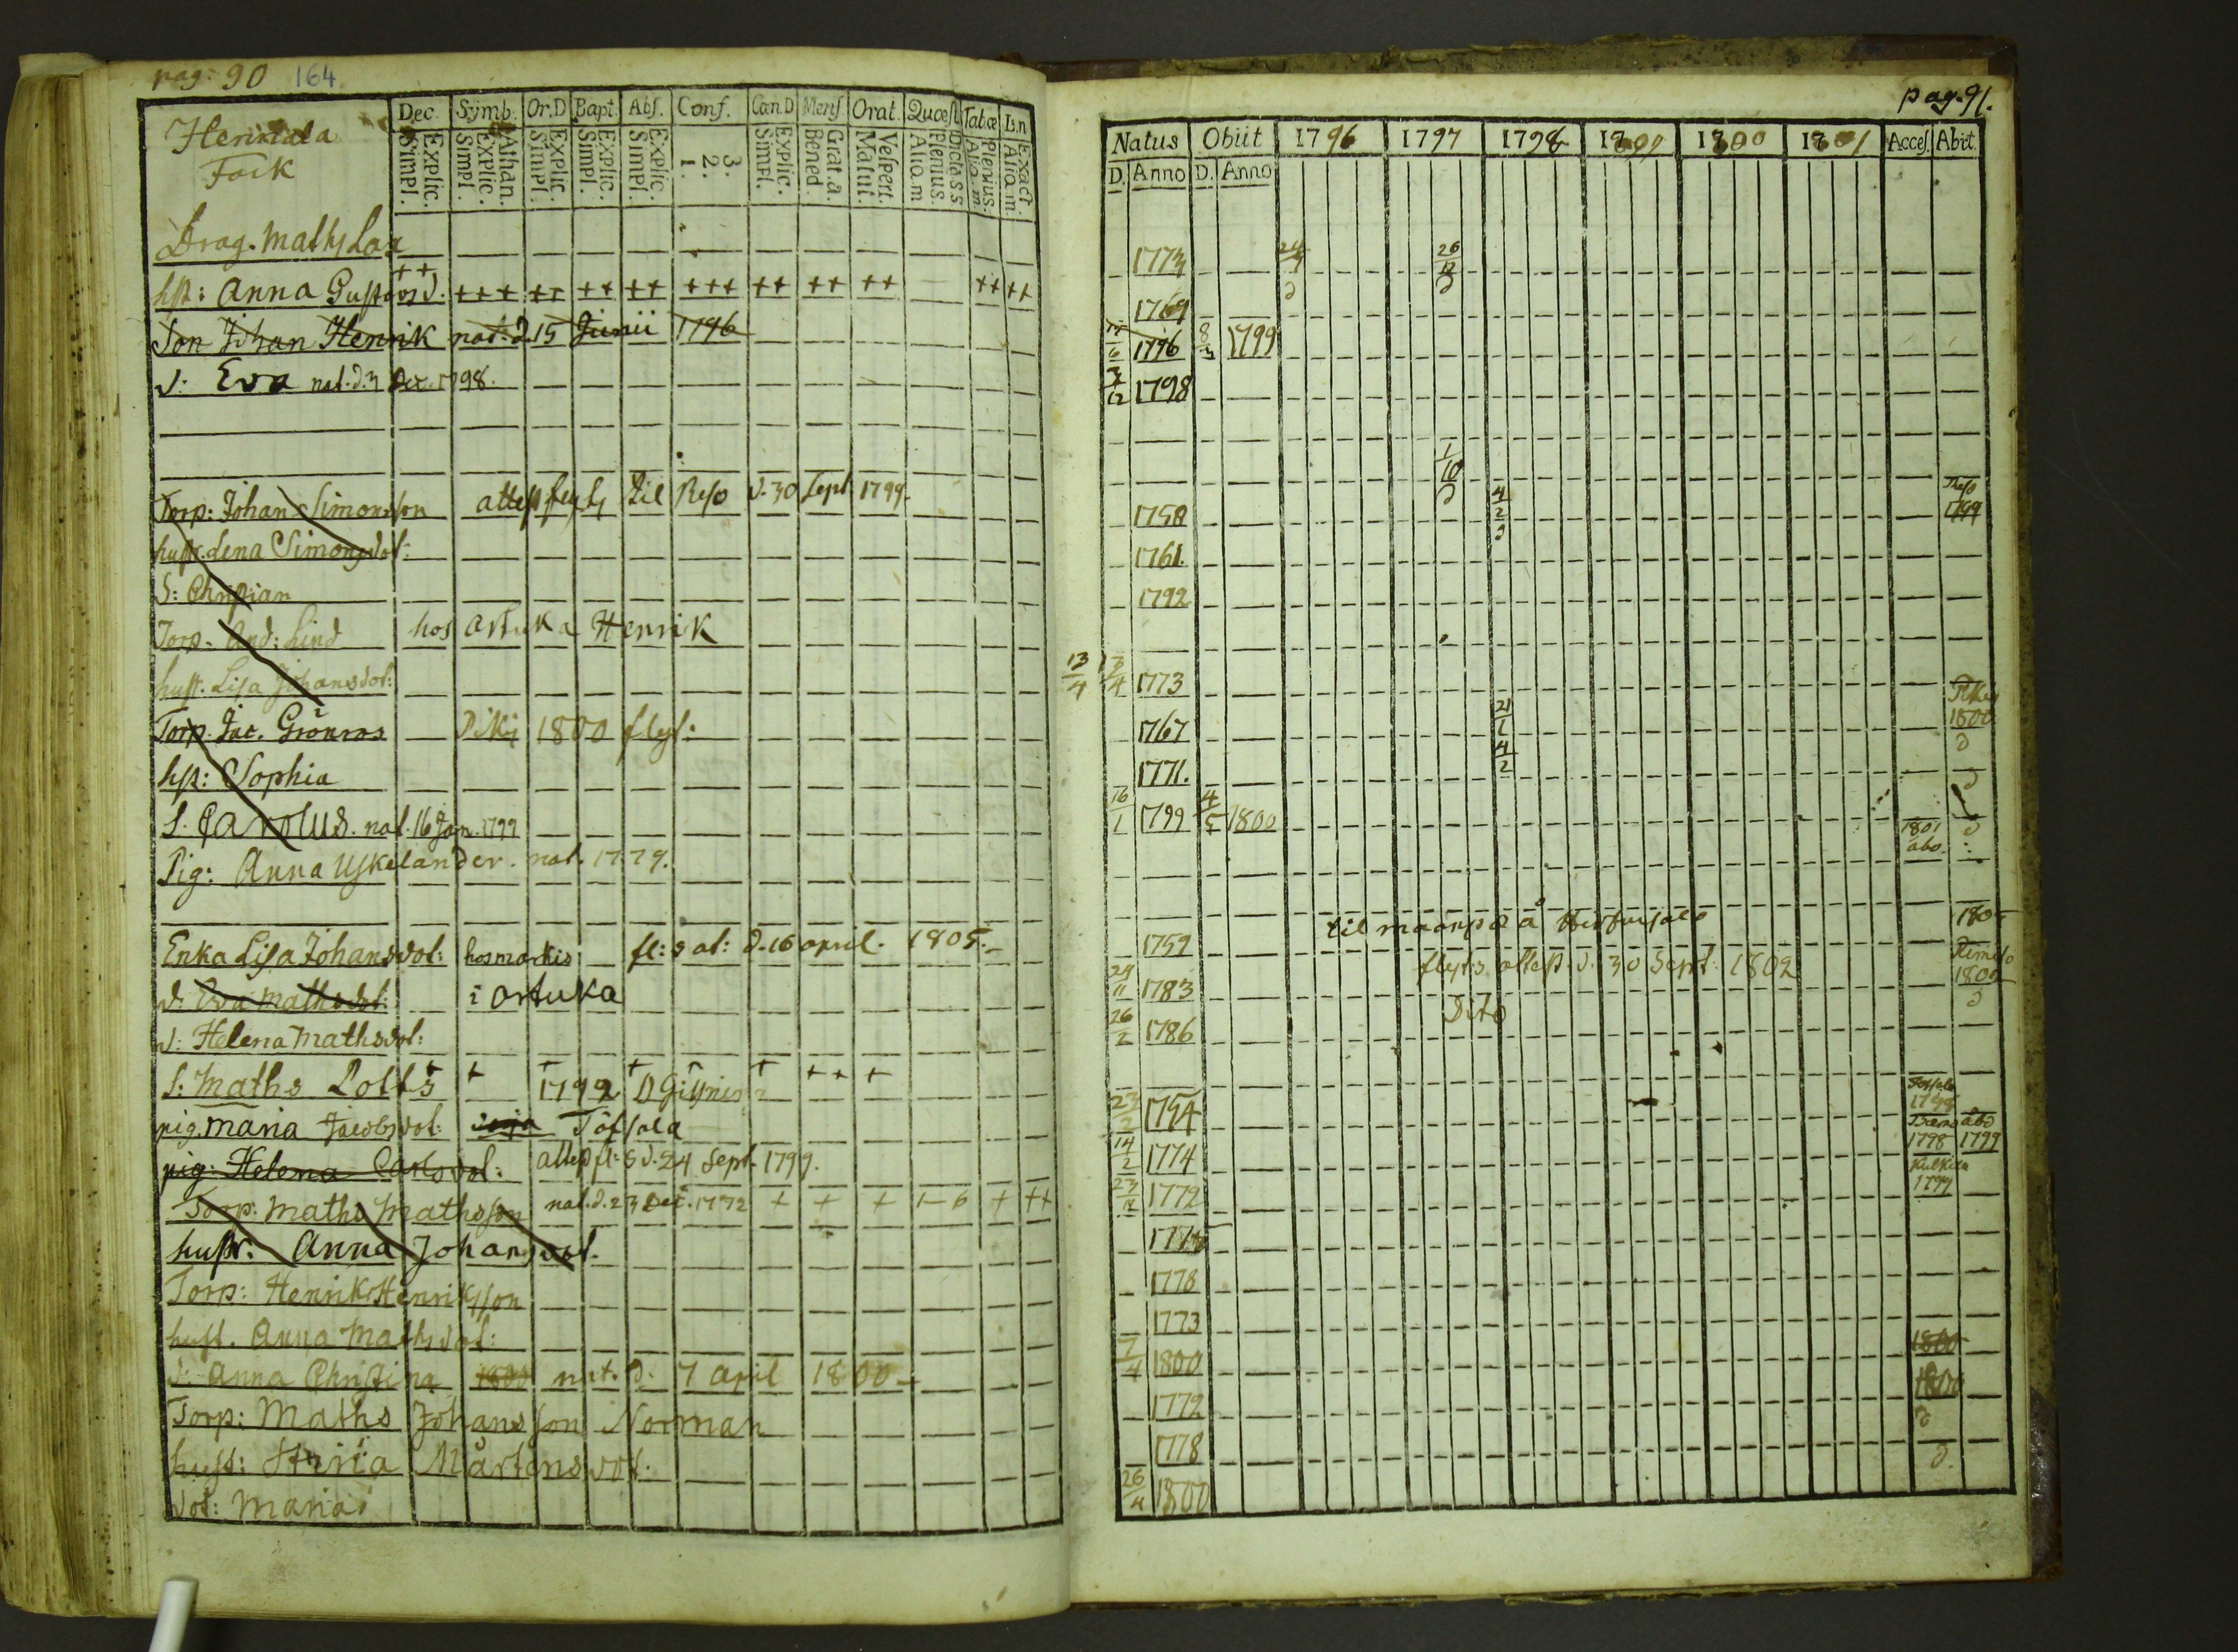 pag: 90 164
Dec. Symb. Or.D Bapt. Abs. Conf. Can.D Mens Orat. Quæst Tabæ
Explic. Simpl. Athan. Explic. Simpl. Explic. Simpl. Explic. Simpl. Explic. Simpl. 3. 2. 1. Explic. Simpl. Grat.a. Bened. Vespert. Matut. Plenius. Alio.m Plenius. Alio.m Exact. Alio m
Tork
Drag. Maths Lax
hst: Anna Gustavsd. ++ +++ ++ ++ ++ +++ ++ ++ ++ ++ ++
Son Johan Henrik nat. d. 15 Junii 1796
d: Eva nat. d. 3 Dec. 1798.
Torp: Johan Simonsson attest flyt til Reso d. 30 Sept 1799.
hustr. Lena Simonsdot:
S: Christian
Torp. And: Lind hos Artuka Henrik
hust. Lisa Johansdot:
Torp. Jac. Grönros Pikis 1800 flyt:
hst: Sophia
S. Carolus. nat. 16 Jan. 1799
Pig: Anna Uskelander. nat. 1779.
Enka Lisa Johansdot: hos markis fl: s at: d. 16 april. 1805.
d: Eva Mathsdot: i Artuka
d: Helena Mathsdot:
S: Maths Polts + + + + + ++ +
1792
pig. Maria Jacobsdot: Töfsala
pig: Helena Carlsdot: attest fl: s d. 24 Sept. 1799.
Torp: Maths Mathsson nat. d. 23 Dec. 1772 + + + 1-6 + ++
hustr: Anna Johansdot.
Torp: Henrik Henriksson
hust. Anna Mathsdot:
d: Anna Christina 1800 nat. d. 7 april 1800
Torp: Maths Johansson Norman
hust: Mårtensdot.
dot: Maria
pag. 91.
Natus Obiit 1796 1797 1798 1799 1800 1801 Acces. Abit.
D. Anno D. Anno
1774 26/12
1769
15/6 1796 8/3 1799
3/12 1798
1/10
1758 4/2 Reso 1799
1761.
1792
13/4 13/4 1773
1767 21/1 Pikis 1800
1771. 4/2
16/1 1799 4/5 1800
1801 abo.
1759 til 1805
24/11 1783 flyt:s attest. d. 30 Sept. 1802 Rimito 1802
26/2 1786 Dito
23/2 1754
14/2 1774 1798 Åbo 1799
23/12 1772 1799
1778
1773
7/4 1800 1800
1772 1800
1778
26/11 1800